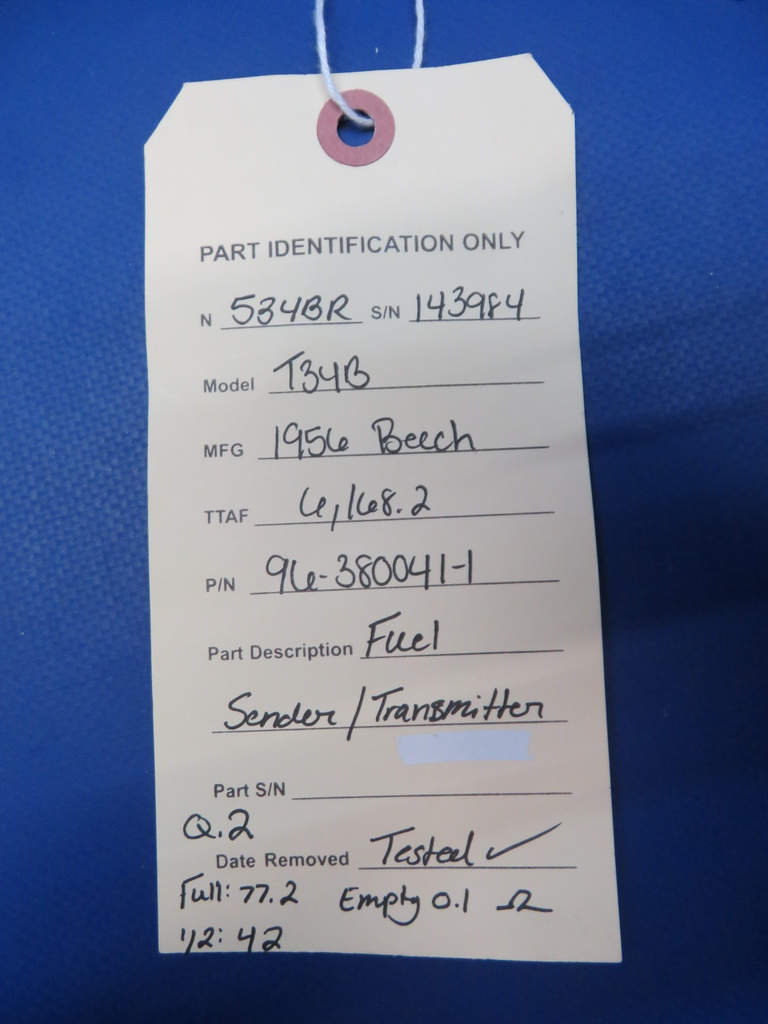 PART IDENTIFICATION ONLY
N 534BR S/N 143984
Model T34B
MFG 1956 Beech
TTAF 6,168.2
P/N 96-380041-1
Part Description Fuel
Sender/Transmitter
Part S/N
Q.2
Date Removed Tested ✓
Full: 77.2 Empty 0.1 Ω
1/2: 42